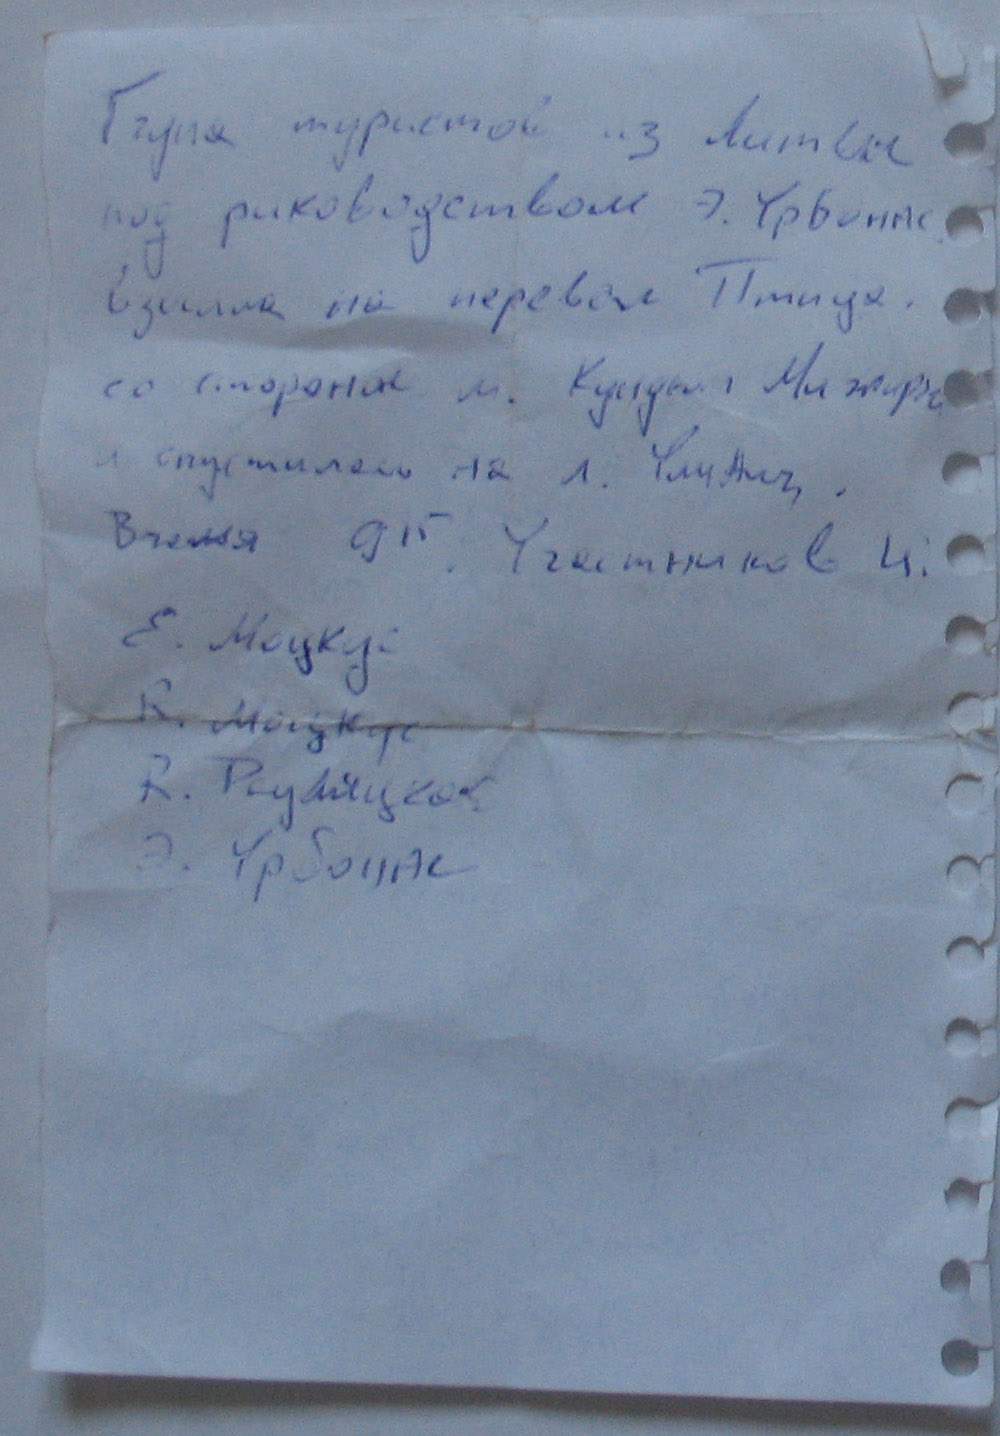 Група туристой из Литвы
под руководством Э. Урбонас
взишла на перевал Птица.
со стороны л. Кундюм Мижирги
и спустилась на л. Уллуауз.
Время 9 15. Участников 4:
Е. Моцкус
R. Моцкус
R.
Э. Урбонас